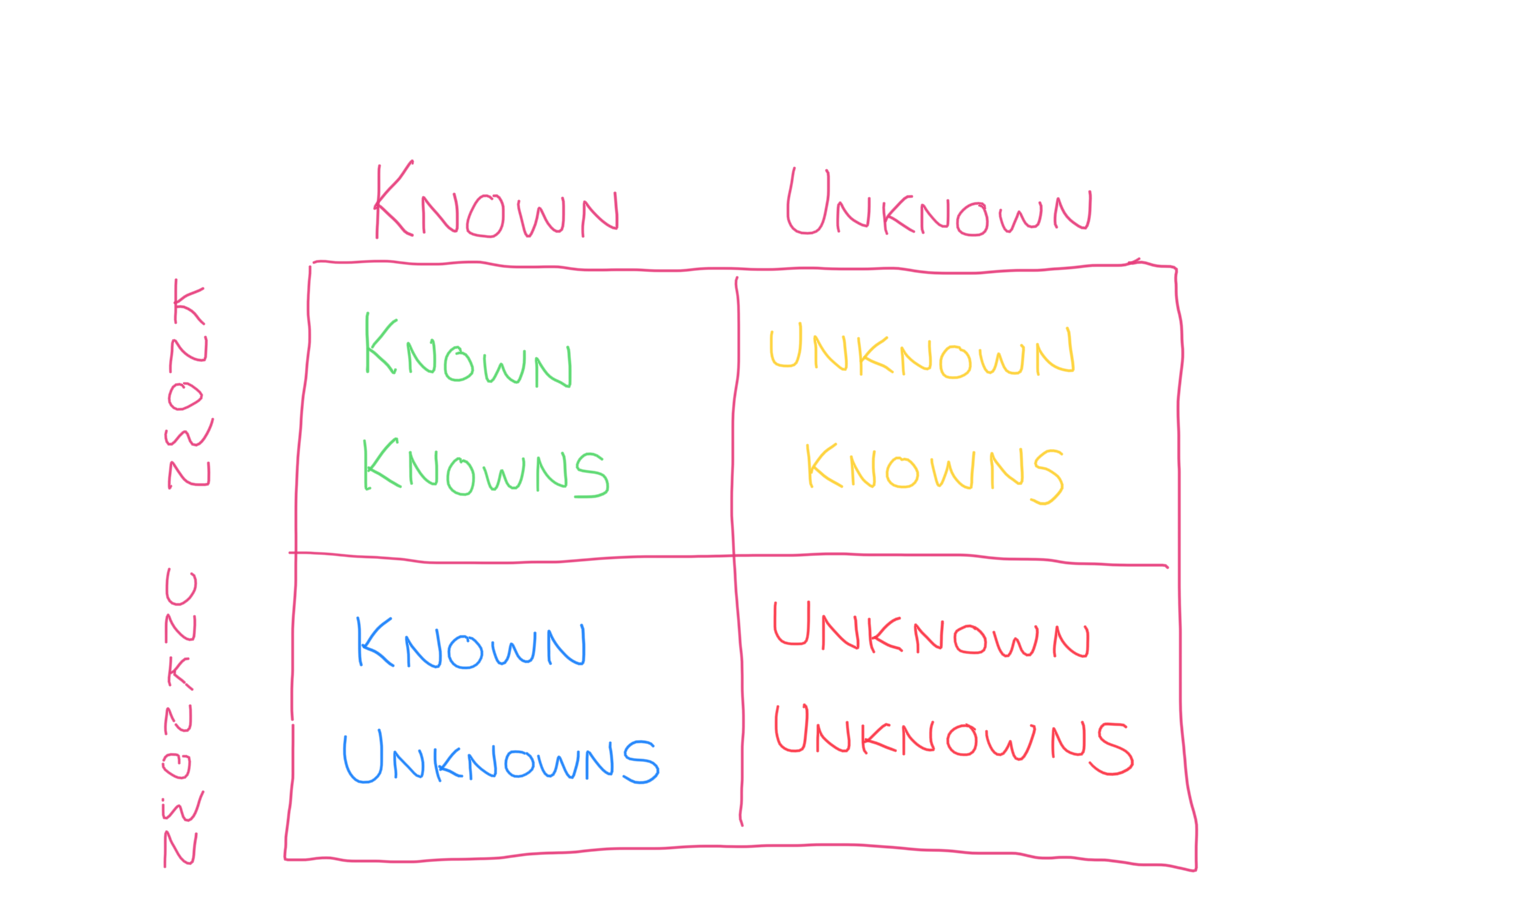 KNOWN UNKNOWN
KNOWN
KNOWN
KNOWNS
UNKNOWN
KNOWNS
UNKNOWN
KNOWN
UNKNOWNS
UNKNOWN
UNKNOWNS